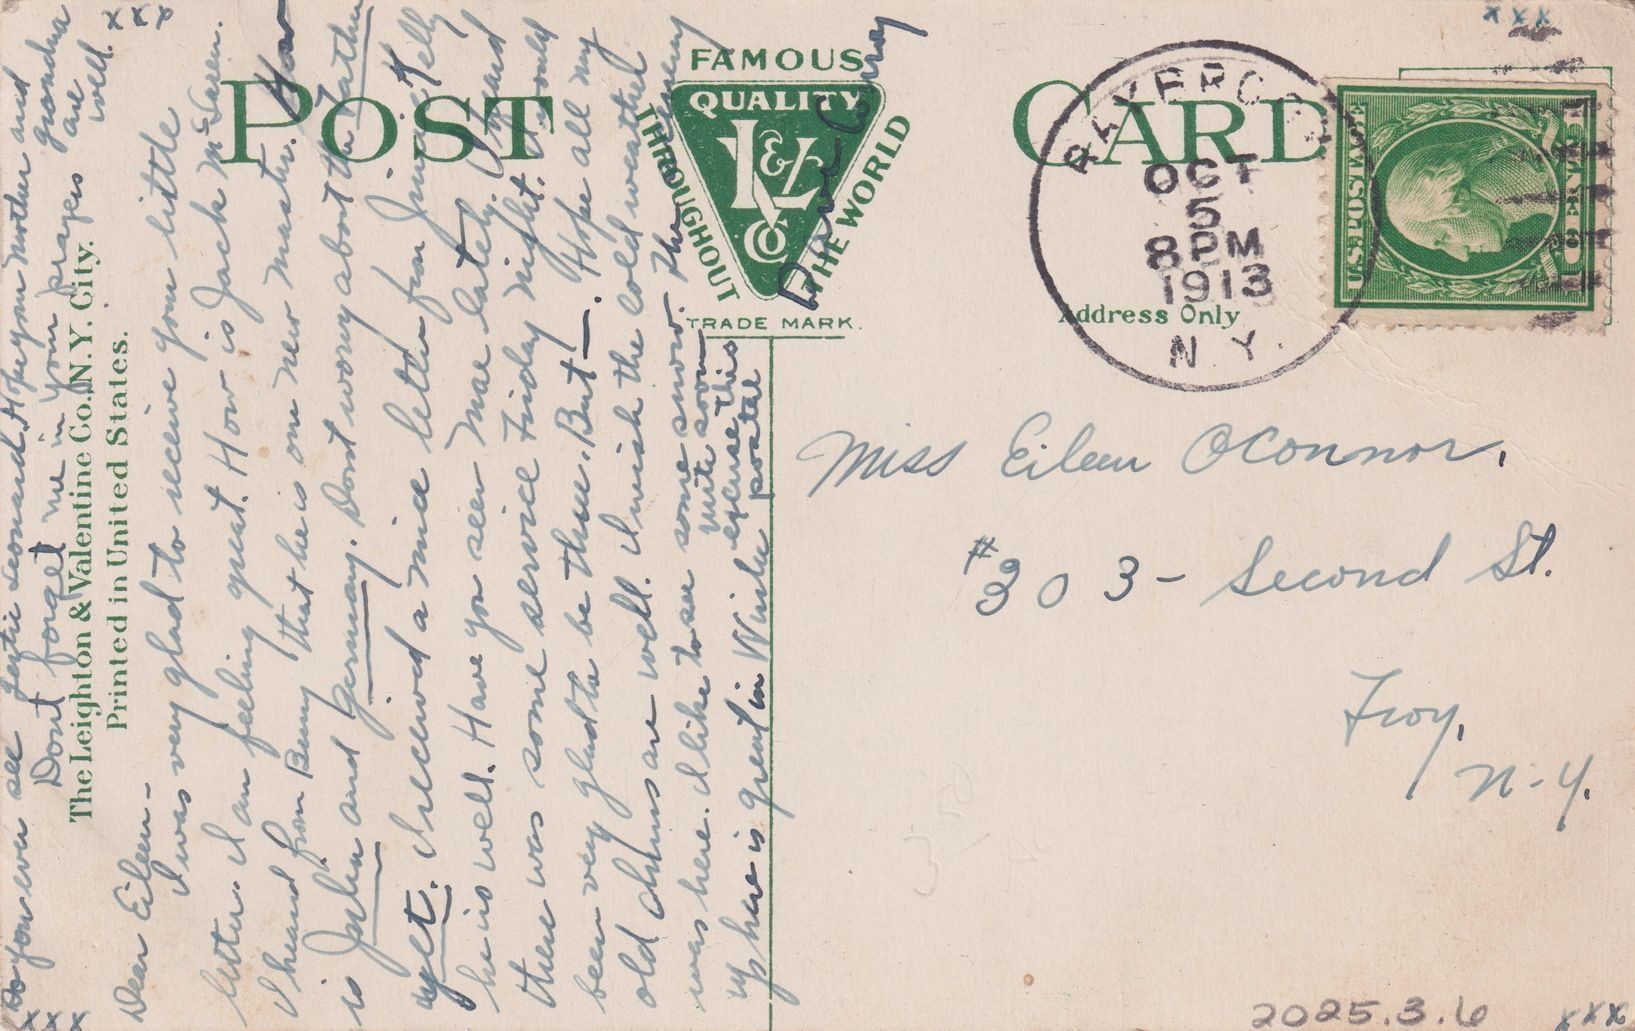 POST CARD
FAMOUS
QUALITY
L & V Co
THROUGHOUT
THE WORLD
TRADE MARK.
Address Only
RAY BROOK
OCT
5
8 PM
1913
N.Y.
U.S. POSTAGE
1 ONE CENT 1
The Leighton & Valentine Co. N.Y. City.
Printed in United States.
Dear Eileen -
I was very glad to receive your little
letter. I am feeling great. How is Jack McLaren.
I heard from Benny that he is our new master. How
is Julia and Germany. Dont worry about the Father
yet. I received a nice letter from Jimie Kelly
he is well. Have you seen Mae lately. I heard
there was some service Friday night. I would
been very glad to be there. But —. Hope all my
old chums are well. I wish the cold weather
was here. I like to see some snow. The scenery
up here is great in Winter
write soon
expense this
postal
Dave Curray
Do you ever see Leonard. Hope your Mother and grandma are well.
Dont forget me in your prayers
xxx
xxx
xxx
xxx
Miss Eileen OConnor.
#303 - Second St.
Troy,
N-Y.
2025.3.6